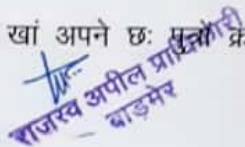 खां अपने छः पुत्रों
राजस्व अपील प्राधिकारी
बाड़मेर